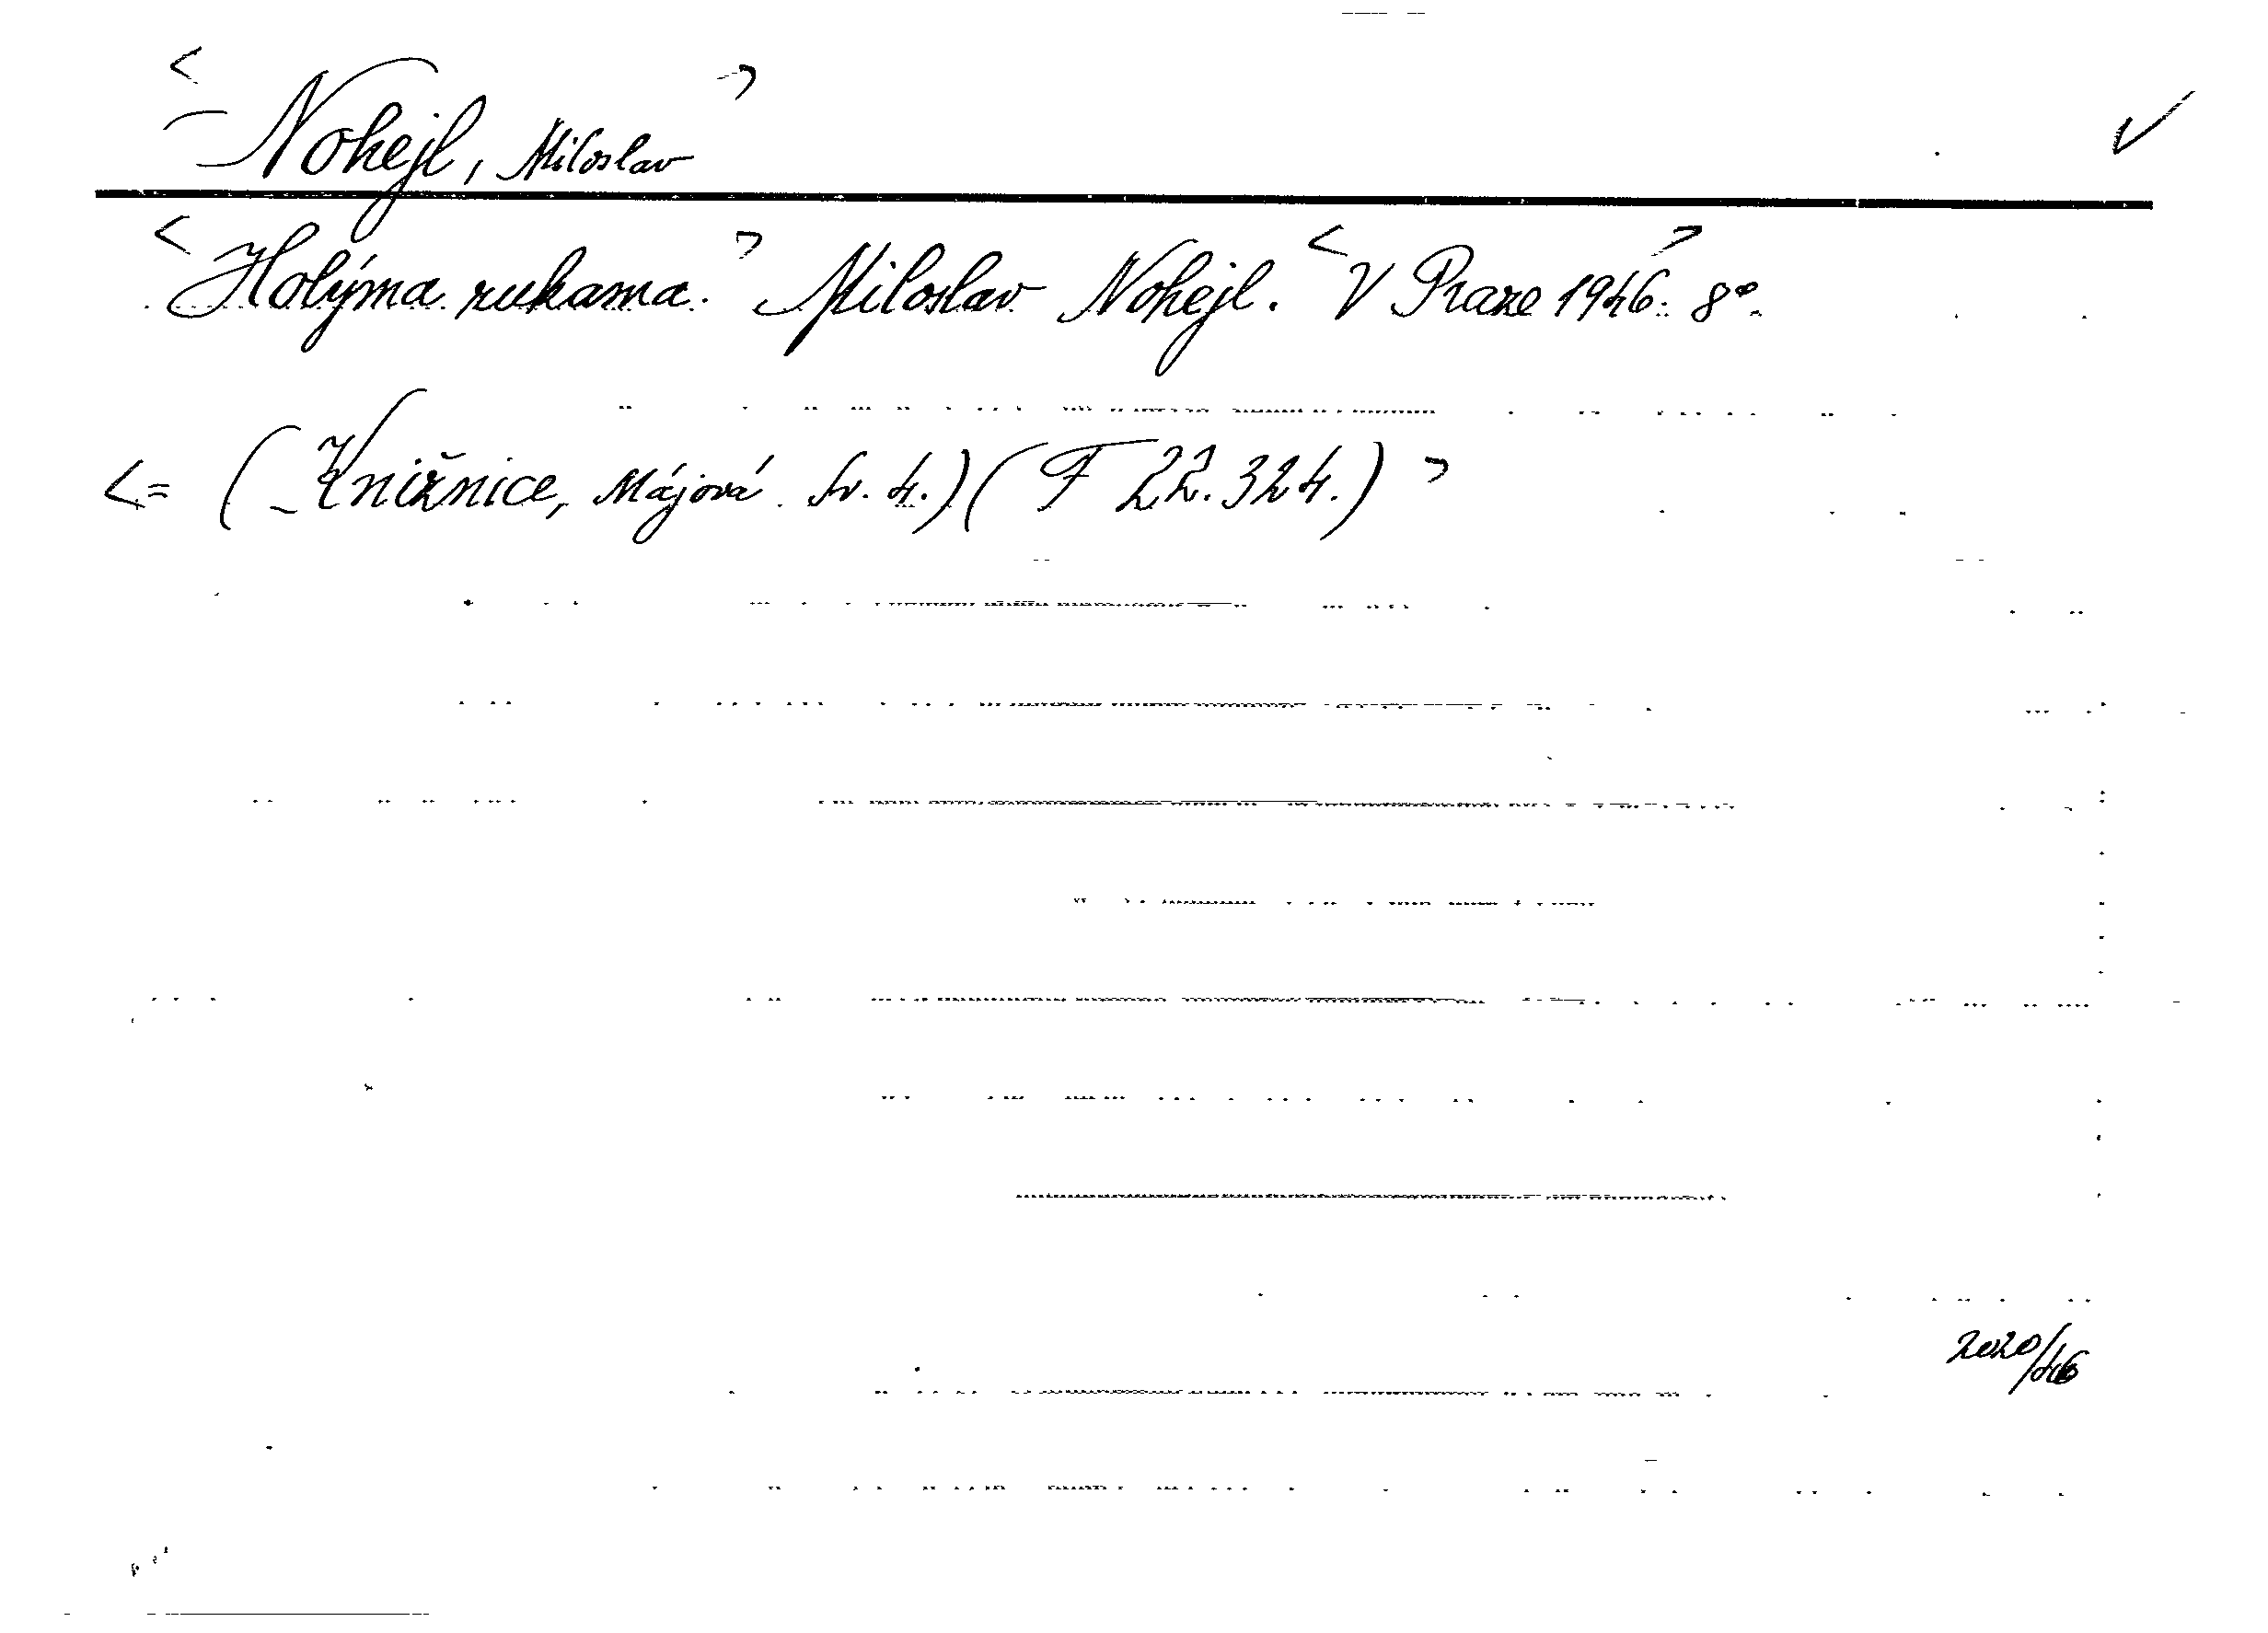 < Nohejl, Miloslav > ✓
< Holýma rukama. > Miloslav Nohejl. < V Praze 1946. > 8°.
<= (Knižnice, Májová Sv. 4.) (F 22.324.) >
2020/46